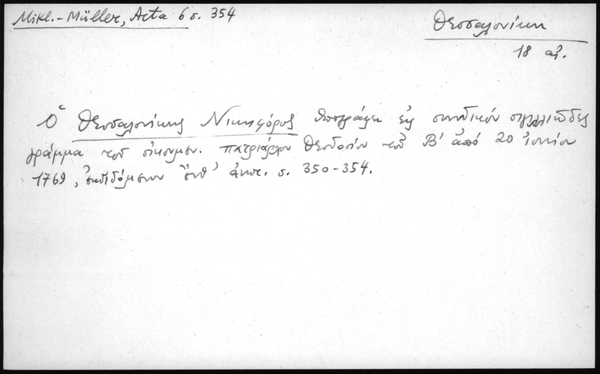 Mikl.-Müller, Acta 6 σ. 354
Θεσσαλονίκη
18 αἰ.
Ὁ Θεσσαλονίκης Νικηφόρος ὑπογράφει εἰς συνοδικὸν σιγιλλιῶδες
γράμμα τοῦ οἰκουμεν. πατριάρχου Θεοδοσίου τοῦ Β' ἀπὸ 20 ἰουνίου
1769, ἐκδιδόμενον ἀνωτ. σ. 350-354.